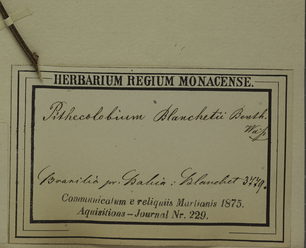 HERBARIUM REGIUM MONACENSE.
Pithecolobium Blanchetii Benth.
Brasilia pr. Bahia: Blanchet
Communicatum e reliquiis Martianis 1875.
Aquisitions-Journal Nr. 229.